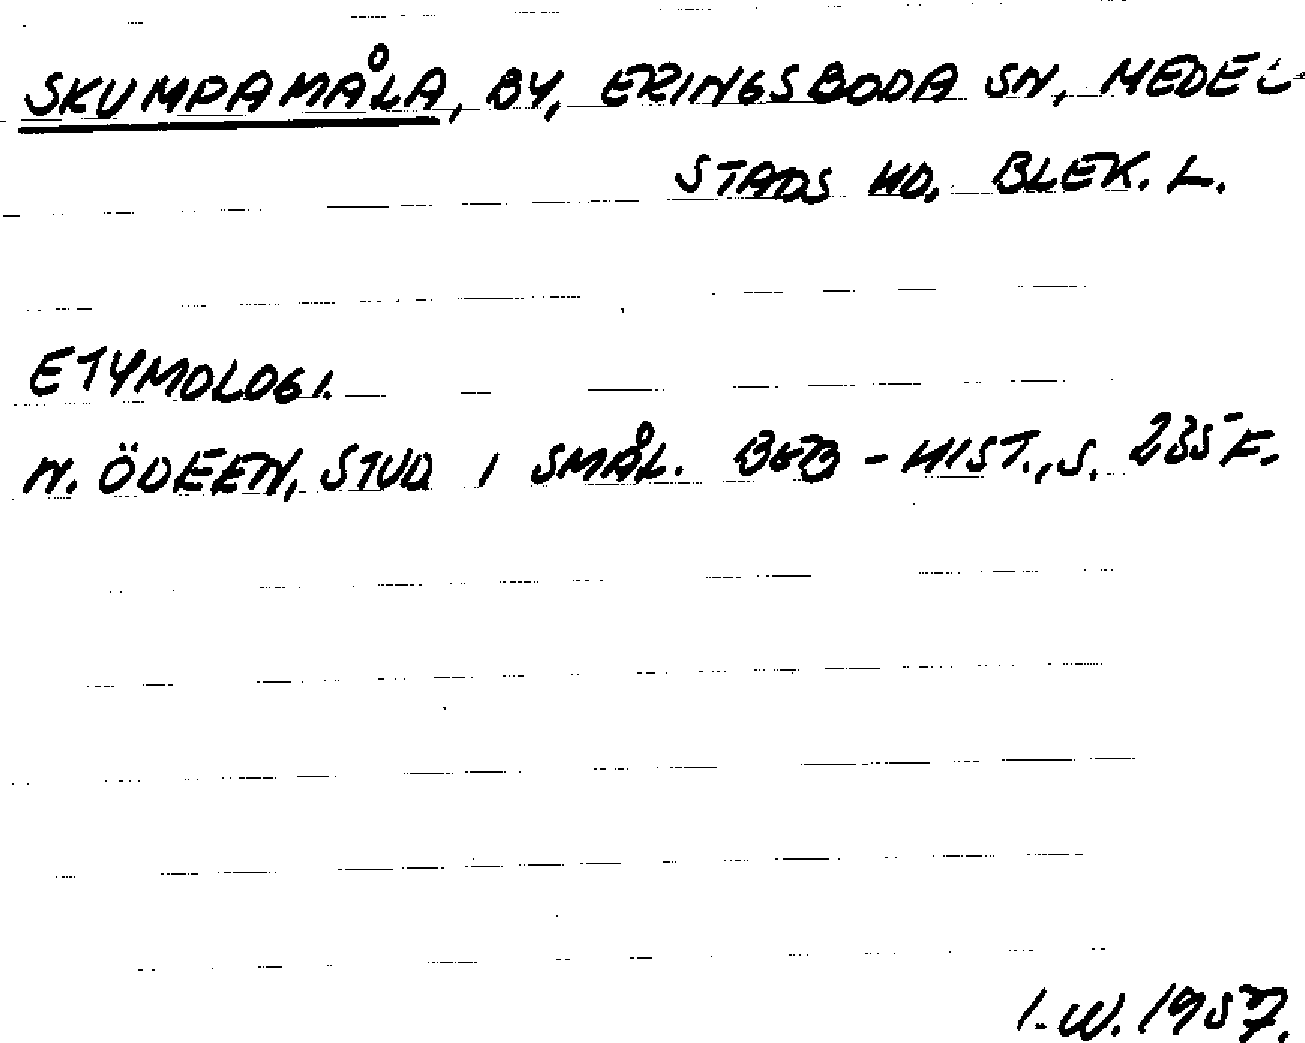 SKUMPAMÅLA, BY, ERINGSBODA SN, MEDEL-
STADS HD. BLEK. L.
ETYMOLOGI.
N. ÖDEEN, STUD I SMÅL. BEB-HIST., S. 235 F.
I.W. 1957.